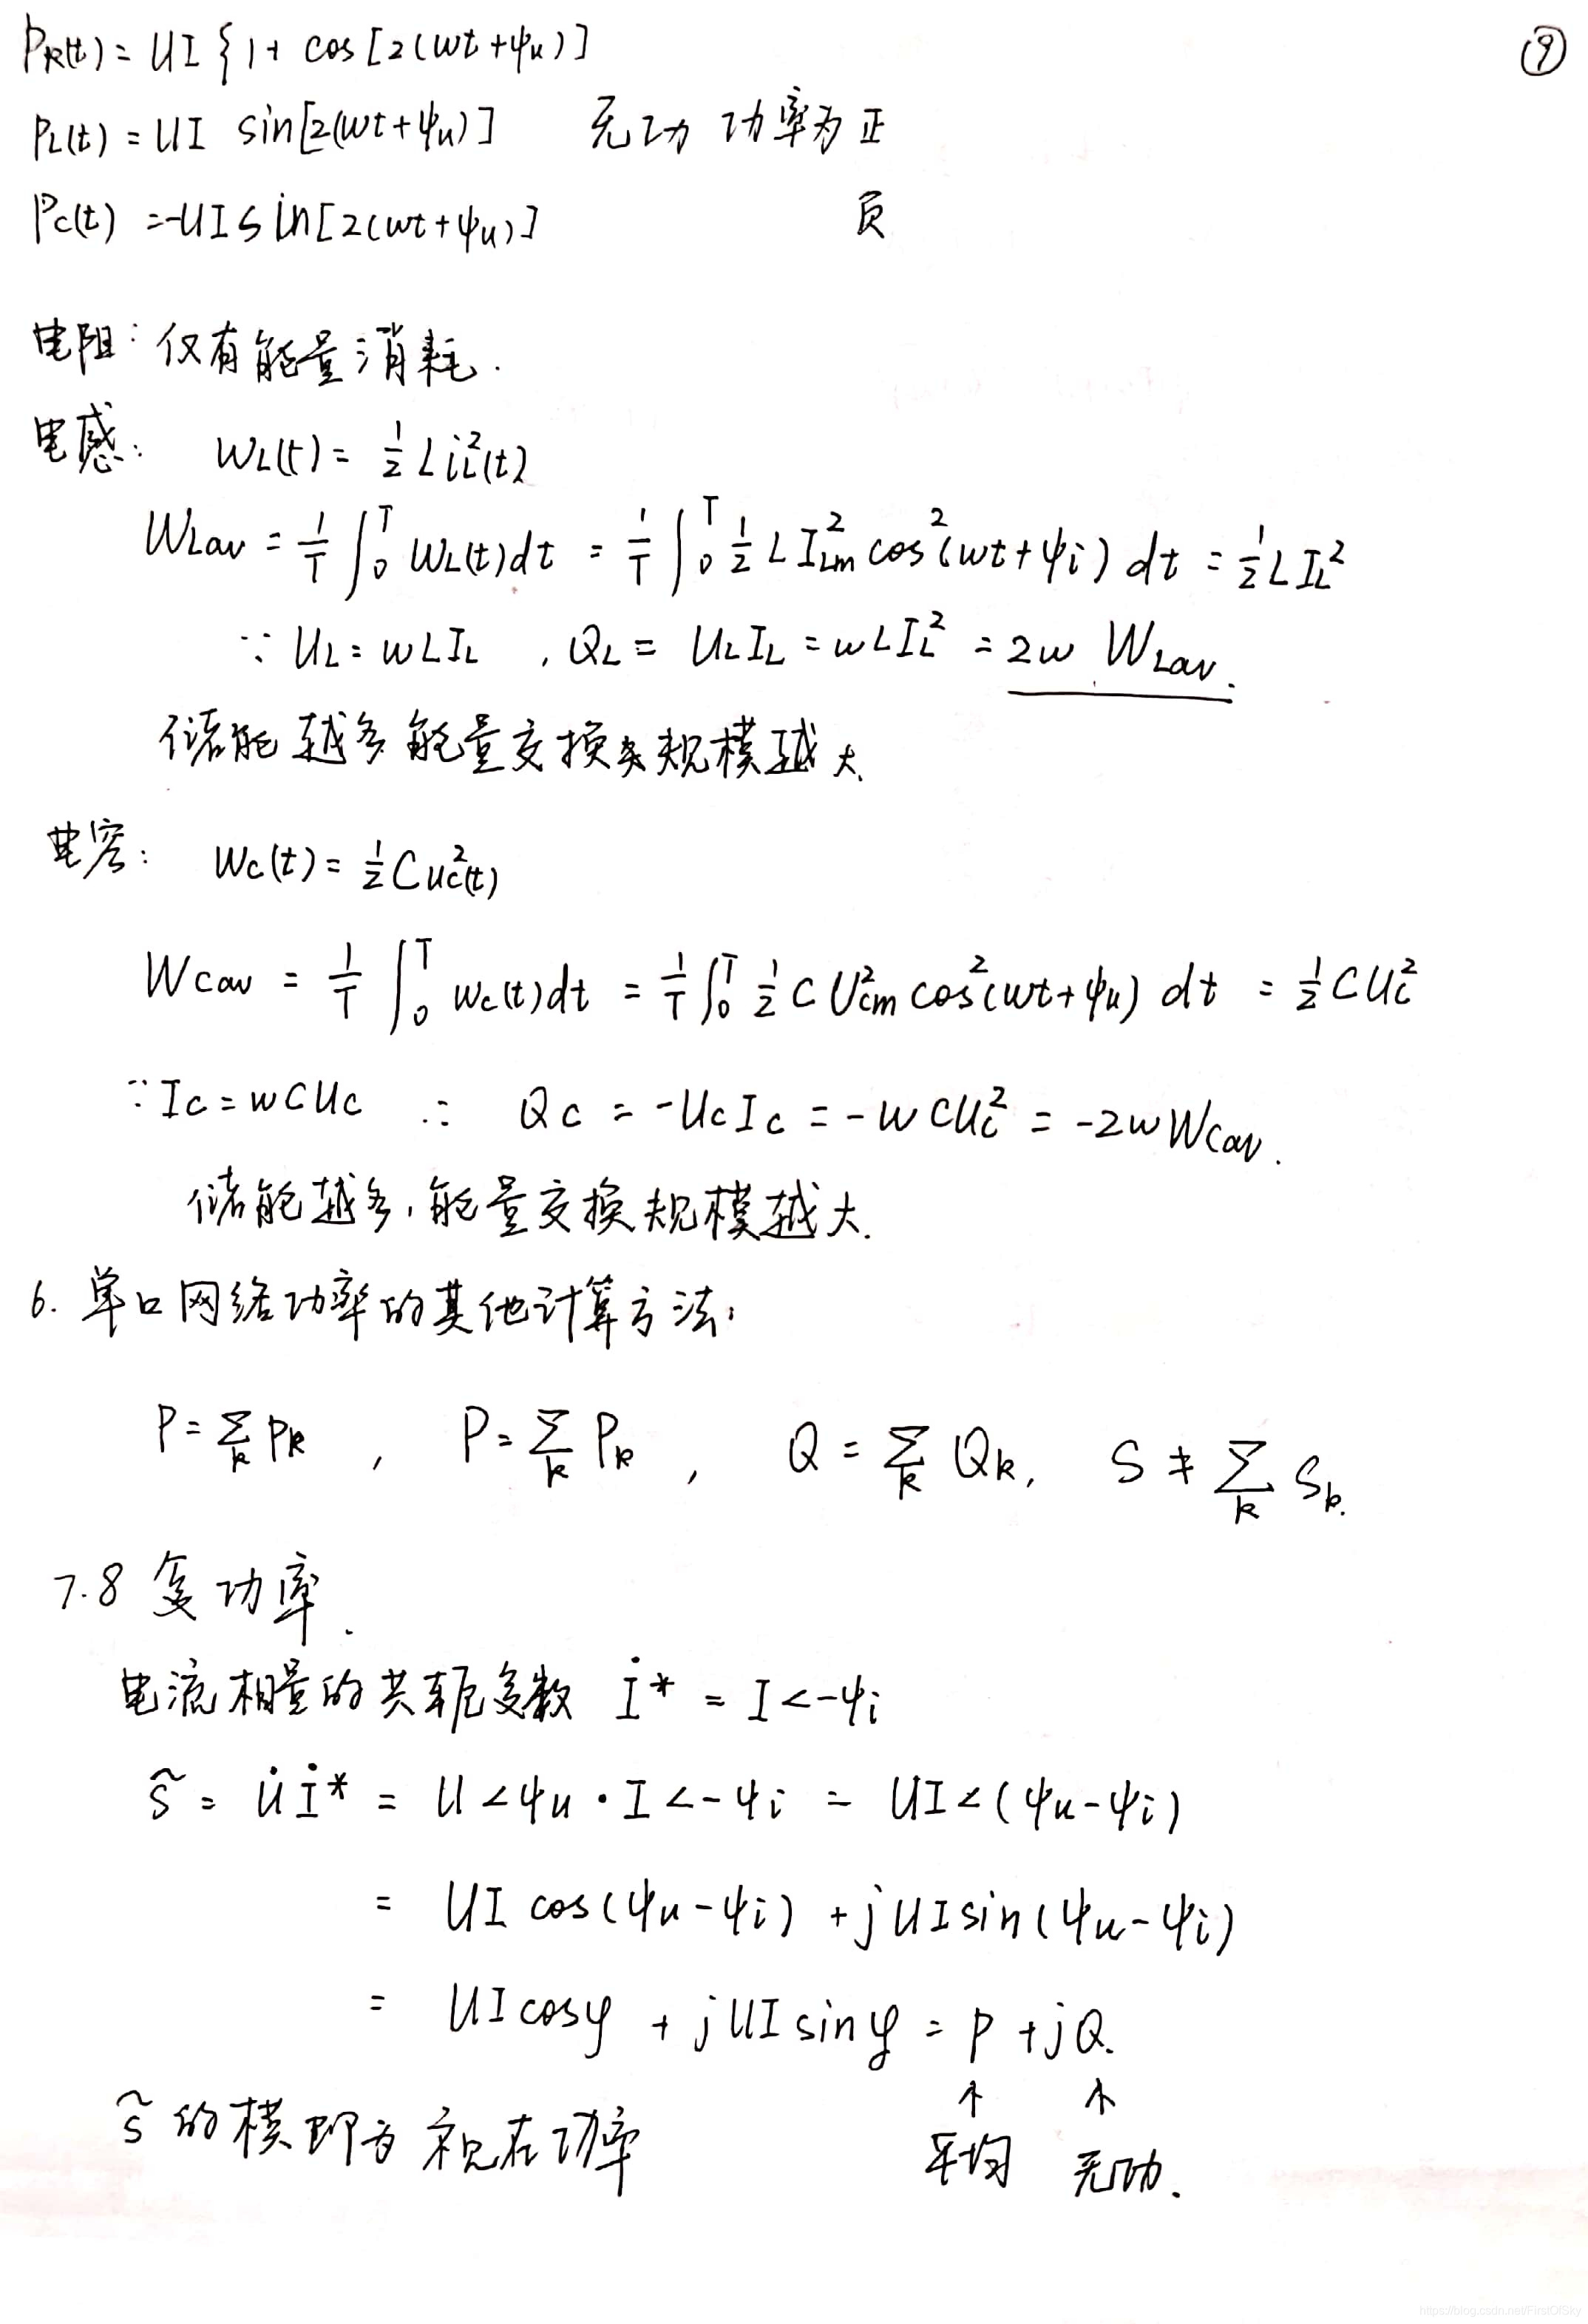 ⑨
P_R(t) = UI {1+ cos[2(wt+ψu)]
P_L(t) = UI sin[2(wt+ψu)] 无功功率为正
P_C(t) = -UI sin[2(wt+ψu)] 负
电阻: 仅有能量消耗.
电感: W_L(t) = 1/2 L i_L²(t)
W_Lav = 1/T ∫₀ᵀ W_L(t)dt = 1/T ∫₀ᵀ 1/2 L I_Lm² cos²(wt+ψi) dt = 1/2 L I_L²
∵ U_L = wLI_L , Q_L = U_L I_L = wLI_L² = 2w W_Lav.
储能越多能量交换规模越大.
电容: W_C(t) = 1/2 C u_C²(t)
W_Cav = 1/T ∫₀ᵀ W_C(t)dt = 1/T ∫₀ᵀ 1/2 C U_Cm² cos²(wt+ψu) dt = 1/2 C U_C²
∵ I_C = wCU_C ∴ Q_C = -U_C I_C = -wCU_C² = -2wW_Cav.
储能越多,能量交换规模越大.
6. 单口网络功率的其他计算方法:
P = ∑_k P_k , P = ∑_k P_k , Q = ∑_k Q_k, S ≠ ∑_k S_k.
7.8 复功率.
电流相量的共轭复数 İ* = I∠-ψi
S̃ = U̇İ* = U∠ψu · I∠-ψi = UI∠(ψu-ψi)
= UI cos(ψu-ψi) + jUI sin(ψu-ψi)
= UI cosφ + jUI sinφ = P + jQ.
↑ ↑
S̃的模即为视在功率 平均 无功.
https://blog.csdn.net/FirstOfSky